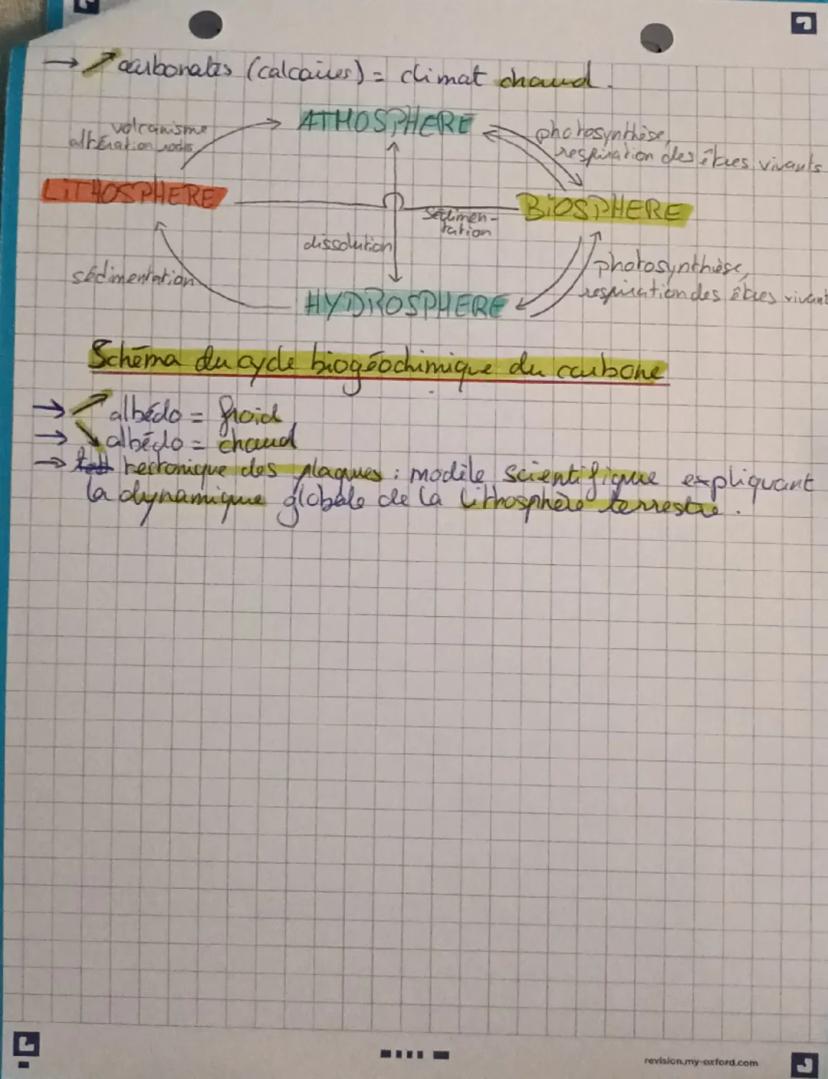 → ↗ carbonates (calcaires) = climat chaud.
volcanisme
altération roches
ATMOSPHERE
photosynthèse,
respiration des êtres vivants
LITHOSPHERE
BIOSPHERE
sédimen-
tation
dissolution
sédimentation
photosynthèse,
respiration des êtres vivant
HYDROSPHERE
Schéma du cycle biogéochimique du carbone
→ ↗ albédo = froid
→ ↘ albédo = chaud
→ tectonique des plaques : modèle scientifique expliquant
la dynamique globale de la lithosphère terrestre.
revision.my-oxford.com